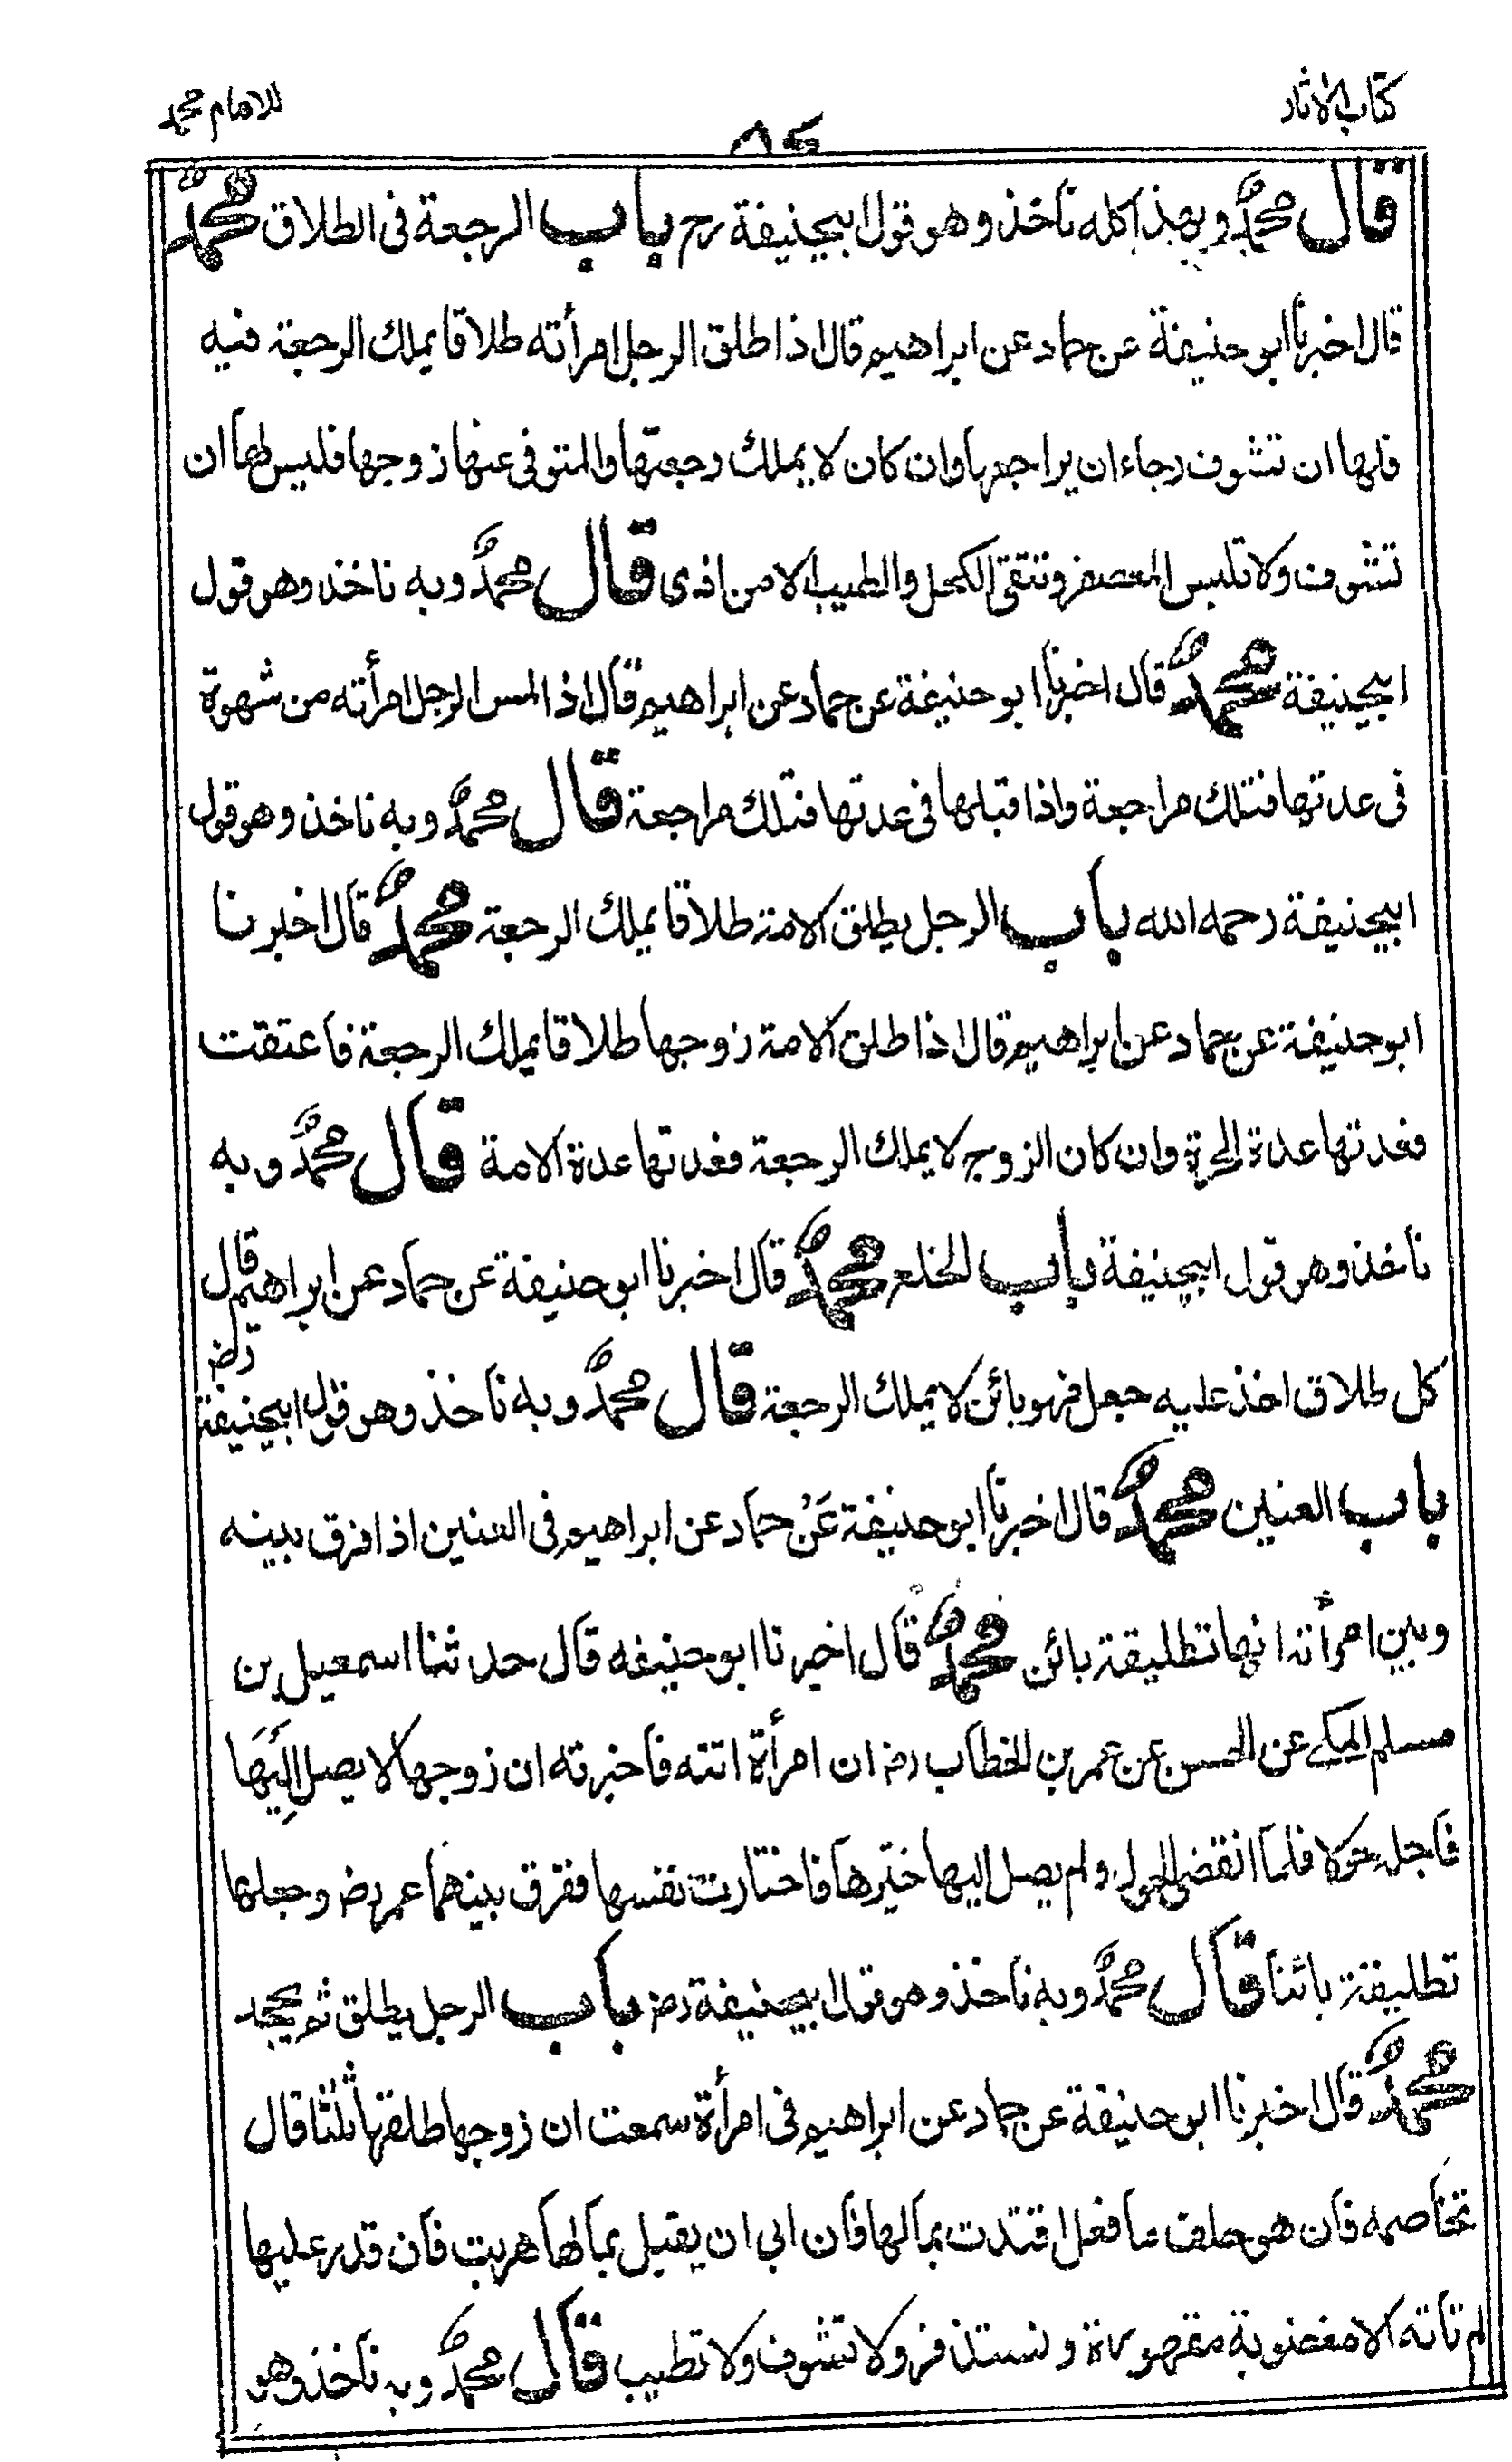 كتاب الاثار
للامام محمد
قال محمدؒ وبهذا كله ناخذ وهو قول ابيحنيفة رح باب الرجعة فى الطلاق محمدؒ
قال اخبرنا ابو حنيفة عن حماد عن ابراهيم قال اذا طلق الرجل امرأته طلاقا يملك الرجعة فيه
فلها ان تشوف رجاء ان يراجعها وان كان لا يملك رجعتها والمتوفى عنها زوجها فليس لها ان
تشوف ولا تلبس المعصفر وتتقى الكحل والطيب الا من اذى قال محمدؒ وبه ناخذ وهو قول
ابيحنيفة محمدؒ قال اخبرنا ابو حنيفة عن حماد عن ابراهيم قال اذا لمس الرجل امرأته من شهوة
فى عدتها فتلك مراجعة واذا قبلها فى عدتها فتلك مراجعة قال محمدؒ وبه ناخذ وهو قول
ابيحنيفة رحمه الله باب الرجل يطلق الامة طلاقا يملك الرجعة محمدؒ قال اخبرنا
ابو حنيفة عن حماد عن ابراهيم قال اذا طلق الامة زوجها طلاقا يملك الرجعة فاعتقت
فعدتها عدة الحرة وان كان الزوج لا يملك الرجعة فعدتها عدة الامة قال محمدؒ وبه
ناخذ وهو قول ابيحنيفة باب الخلع محمدؒ قال اخبرنا ابو حنيفة عن حماد عن ابراهيم قال
كل طلاق اخذ عليه جعل فهو بائن لا يملك الرجعة قال محمدؒ وبه ناخذ وهو قول ابيحنيفة رض
باب العنين محمدؒ قال اخبرنا ابو حنيفة عَنْ حماد عن ابراهيم فى العنين اذا فرق بينه
وبين امرأته انها تطليقة بائن محمدؒ قال اخبرنا ابو حنيفه قال حدثنا اسمعيل بن
مسلم المكي عن الحسن عن عمر بن الخطاب رض ان امرأة اتته فاخبرته ان زوجها لا يصل اليها
فاجله حولا فلما انقضى الحول ولم يصل اليها خيّرها فاختارت نفسها ففرق بينهما عمر رض وجعلها
تطليقة بائنا قال محمدؒ وبه ناخذ وهو قول ابيحنيفة رض باب الرجل يطلق ثم يجحد
محمدؒ قال اخبرنا ابو حنيفة عن حماد عن ابراهيم فى امرأة سمعت ان زوجها طلقها ثلثا قال
تخاصمه فان هو حلف ما فعل افتدت بمالها فان ابى ان يقبل بمالها هربت فان قدر عليها
لم تاته الا مغضوبة مقهورة وتستذفر ولا تشوف ولا تطيب قال محمدؒ وبه ناخذ وهو